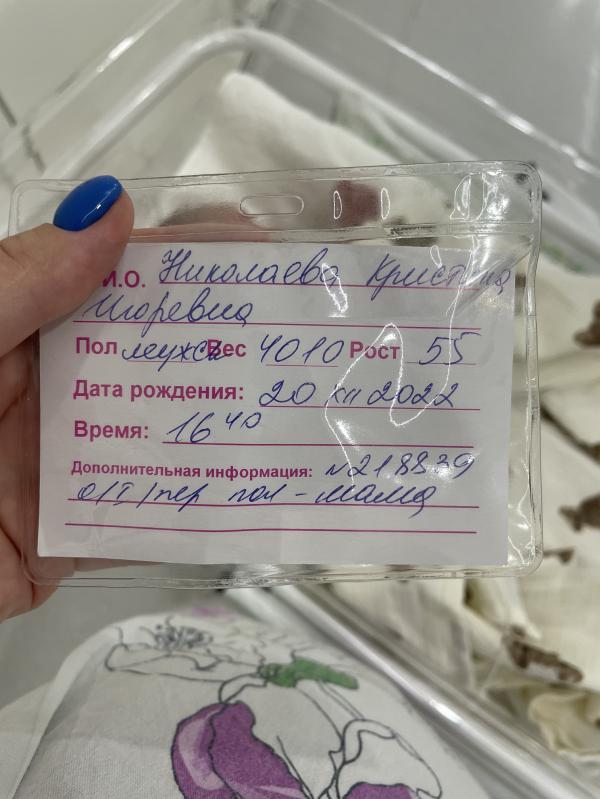 И.О. Николаева Кристина
Игоревна
Пол мужск Вес 4010 Рост 55
Дата рождения: 20 XII 2022
Время: 16 40
Дополнительная информация: N218839
0/I/пер пол - мама